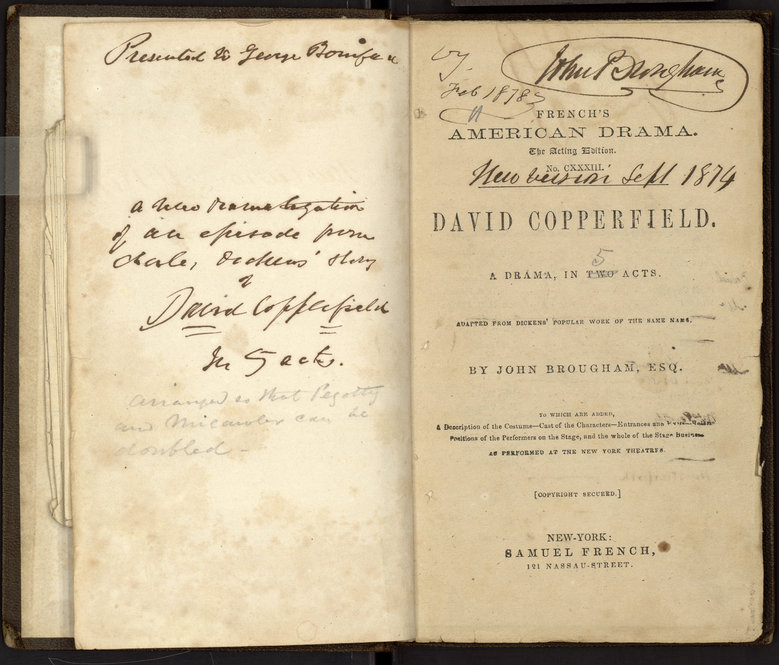 Presented to George Boniface
a New Dramatization
of an episode from
Charles Dickens' Story
of
David Copperfield
In 5 acts.
arranged so that Pegotty
and Micawber can be
doubled -
by John Brougham
Feb 1878
FRENCH'S
AMERICAN DRAMA.
The Acting Edition.
No. CXXXIII.
New version Sept 1874
DAVID COPPERFIELD.
5
A DRAMA, IN TWO ACTS.
ADAPTED FROM DICKENS' POPULAR WORK OF THE SAME NAME.
BY JOHN BROUGHAM, ESQ.
TO WHICH ARE ADDED,
A Description of the Costume—Cast of the Characters—Entrances and
Positions of the Performers on the Stage, and the whole of the Stage Business
AS PERFORMED AT THE NEW YORK THEATRES.
[COPYRIGHT SECURED.]
NEW-YORK:
SAMUEL FRENCH,
121 NASSAU-STREET.